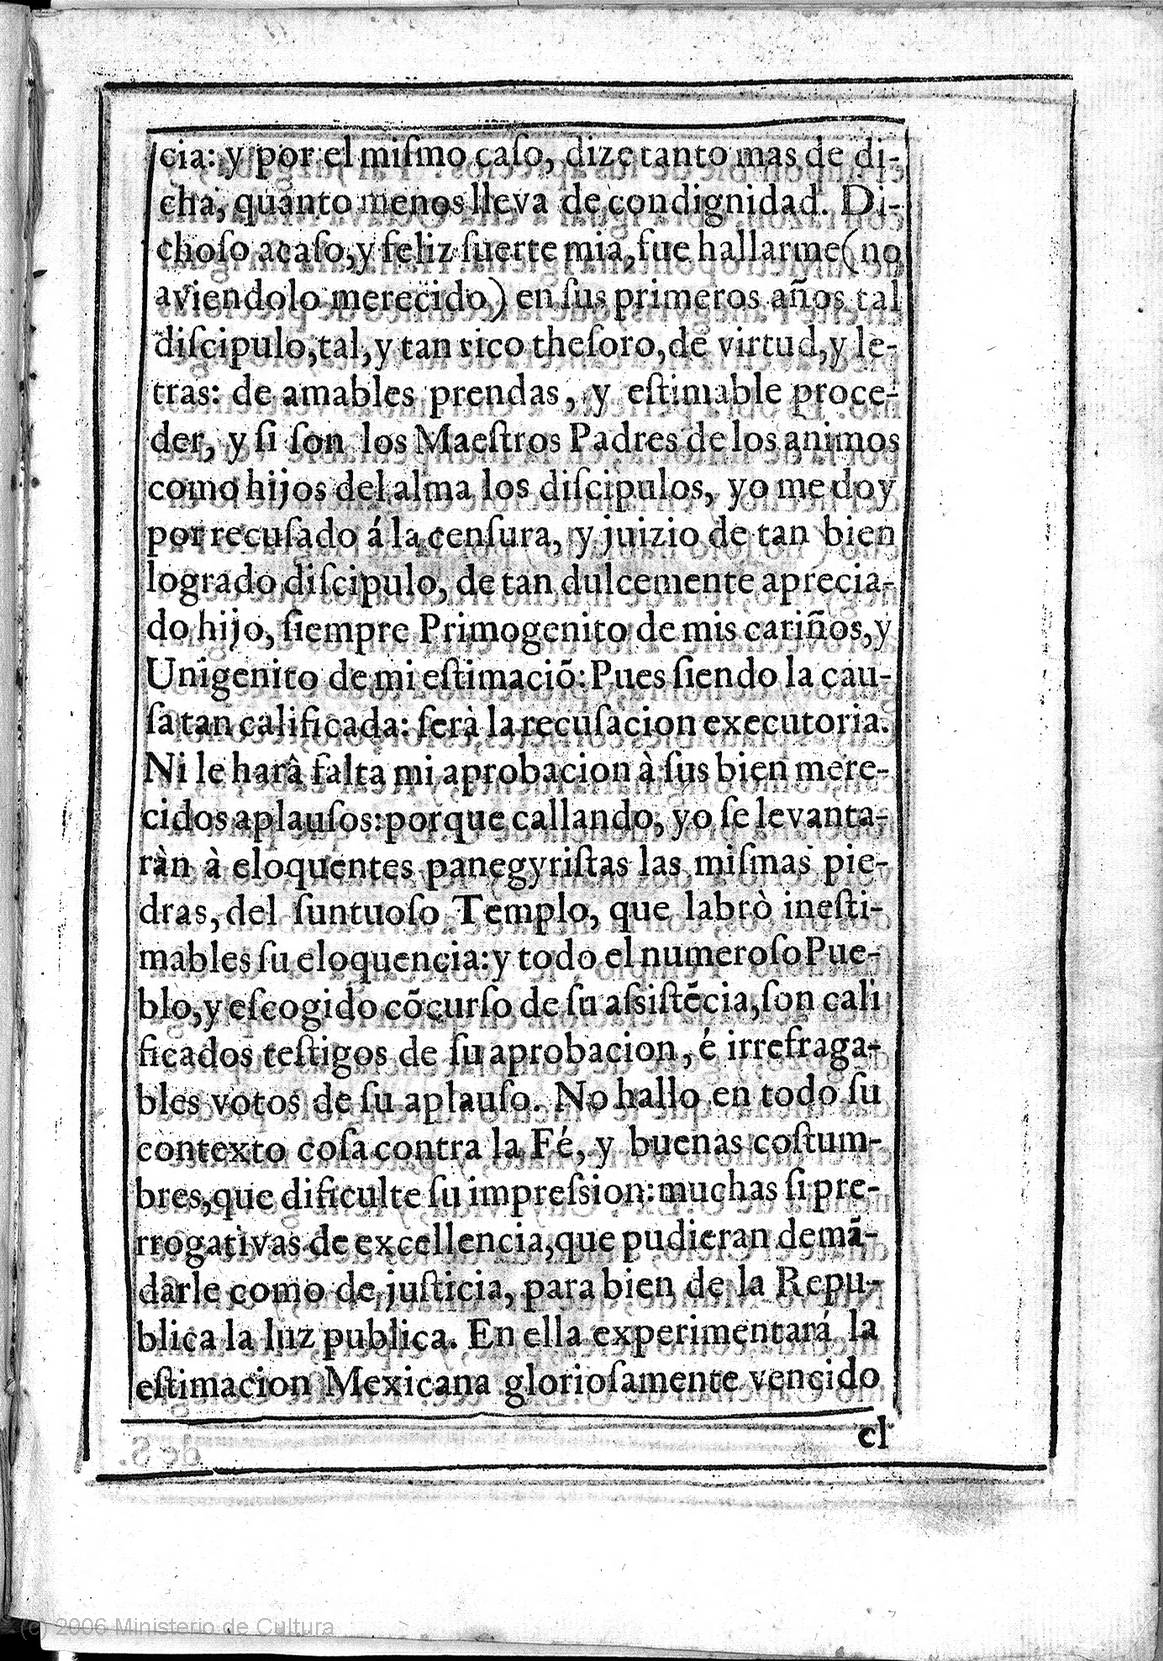 cia: y por el miſmo caſo, dize tanto mas de di-
cha, quanto menos lleva de condignidad. Di-
choſo acaſo, y feliz ſuerte mia, fue hallarme (no
aviendolo merecido) en ſus primeros años tal
diſcipulo, tal, y tan rico theſoro, de virtud, y le-
tras: de amables prendas, y eſtimable proce-
der, y ſi ſon los Maeſtros Padres de los animos
como hijos del alma los diſcipulos, yo me doy
por recuſado á la cenſura, y juizio de tan bien
logrado diſcipulo, de tan dulcemente aprecia-
do hijo, ſiempre Primogenito de mis cariños, y
Unigenito de mi eſtimaciõ: Pues ſiendo la cau-
ſa tan calificada: ſerà la recuſacion executoria.
Ni le harâ falta mi aprobacion à ſus bien mere-
cidos aplauſos: porque callando, yo ſe levanta-
ràn à eloquentes panegyriſtas las miſmas pie-
dras, del ſuntuoſo Templo, que labrò ineſti-
mables ſu eloquencia: y todo el numeroſo Pue-
blo, y eſcogido cõcurſo de ſu aſsiſtẽcia, ſon cali
ficados teſtigos de ſu aprobacion, é irrefraga-
bles votos de ſu aplauſo. No hallo en todo ſu
contexto coſa contra la Fé, y buenas coſtum-
bres, que dificulte ſu impreſsion: muchas ſi pre-
rrogativas de excellencia, que pudieran demã-
darle como de juſticia, para bien de la Repu-
blica la luz publica. En ella experimentará la
eſtimacion Mexicana glorioſamente vencido
el
(c) 2006 Ministerio de Cultura